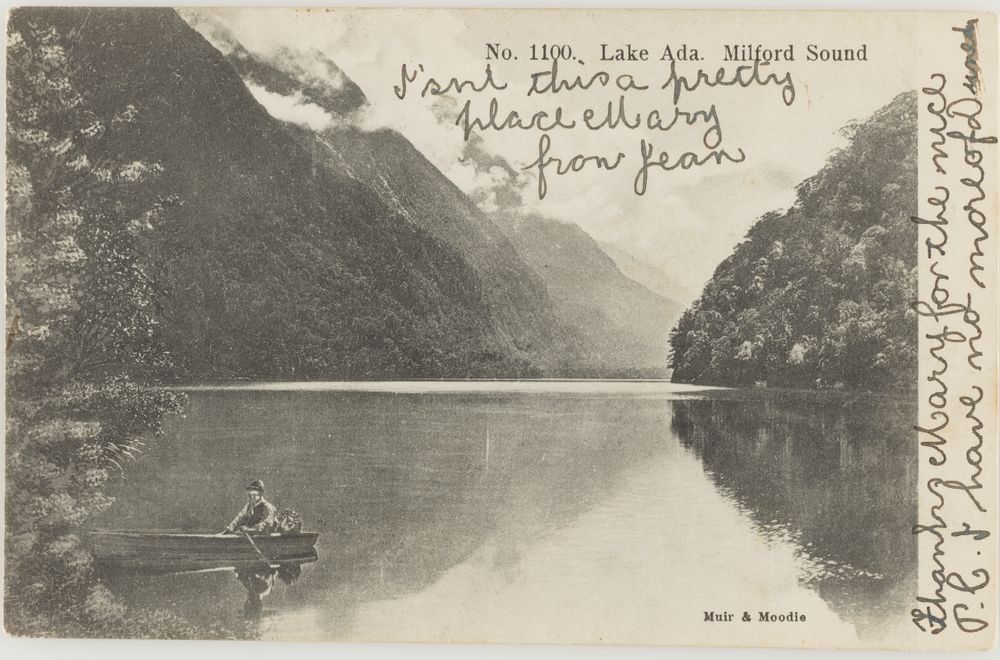 No. 1100. Lake Ada. Milford Sound
I'snt this a pretty
place Mary
from Jean
Muir & Moodie
Thanks Mary for the nice
P.C. I have no more of D